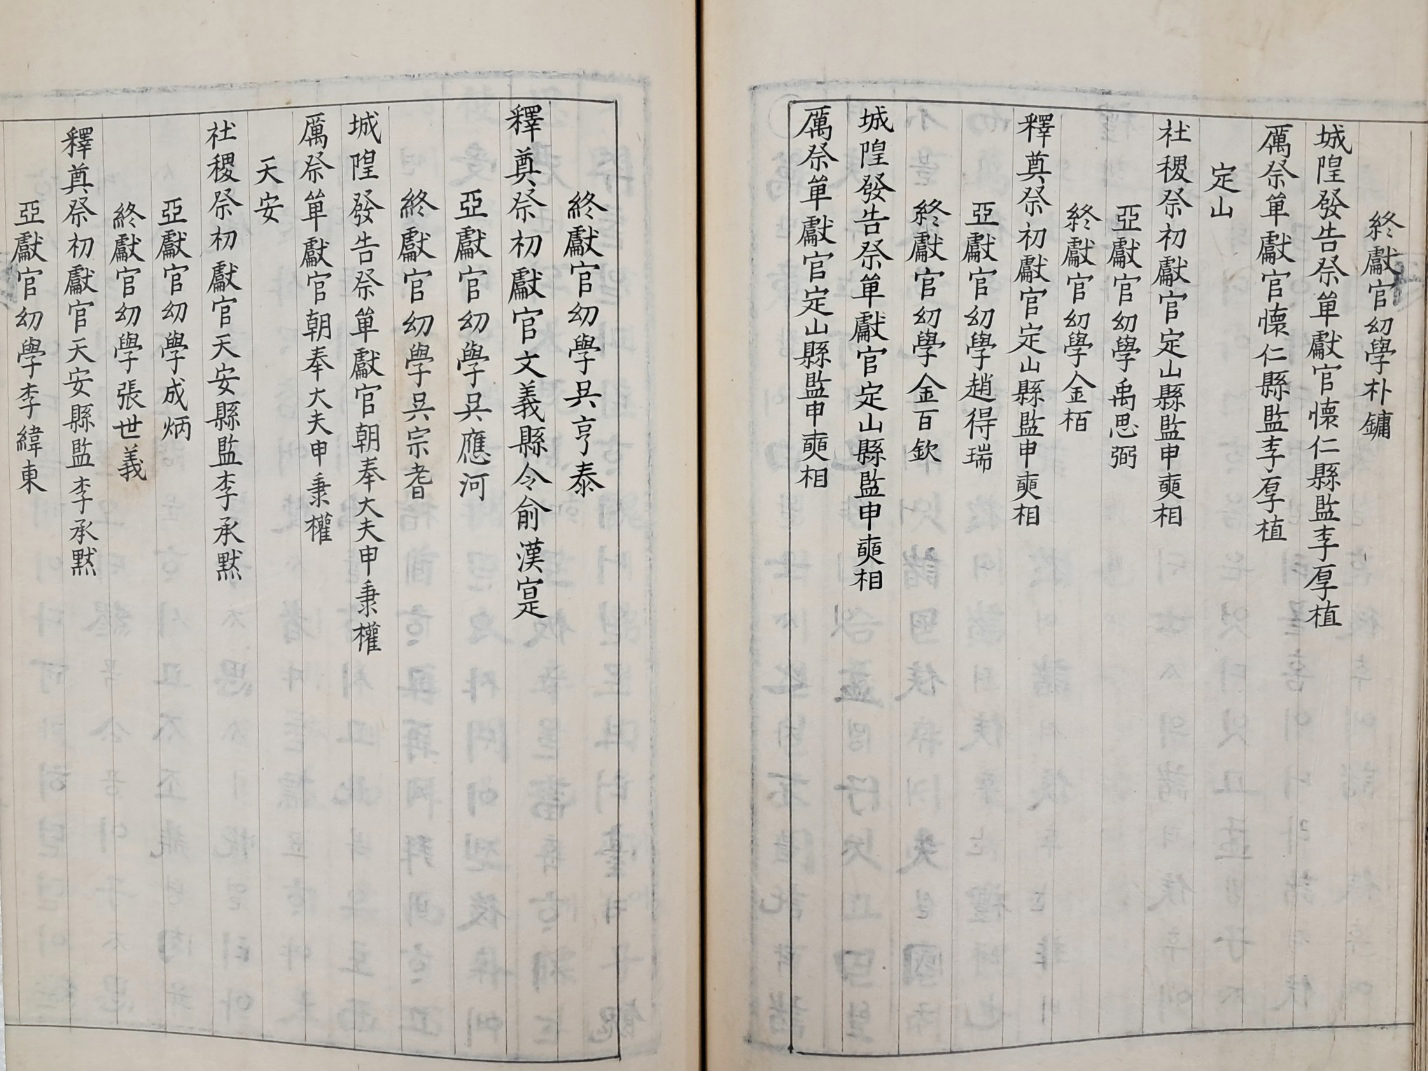 終獻官幼學朴鏞
城隍發告祭單獻官懷仁縣監李厚植
厲祭單獻官懷仁縣監李厚植
定山
社稷祭初獻官定山縣監申奭相
亞獻官幼學禹思弼
終獻官幼學金栢
釋奠祭初獻官定山縣監申奭相
亞獻官幼學趙得瑞
終獻官幼學金百欽
城隍發告祭單獻官定山縣監申奭相
厲祭單獻官定山縣監申奭相
終獻官幼學吳亨泰
釋奠祭初獻官文義縣令俞漢寔
亞獻官幼學吳應河
終獻官幼學吳宗耆
城隍發告祭單獻官朝奉大夫申秉權
厲祭單獻官朝奉大夫申秉權
天安
社稷祭初獻官天安縣監李承默
亞獻官幼學成炳
終獻官幼學張世義
釋奠祭初獻官天安縣監李承默
亞獻官幼學李緯東